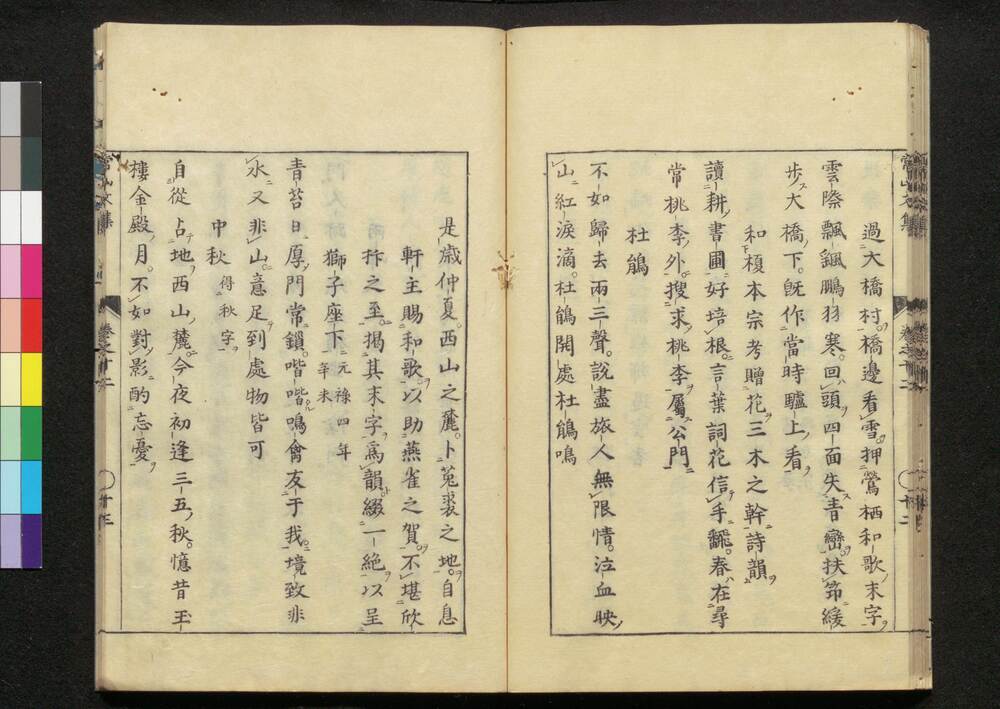 過大橋村。橋邊看雪。押鶯栖和歌末字
雲際飄颻鵬羽寒。回頭四面失青巒。扶筇緩
歩大橋下。旣作當時驢上看
和榎本宗考贈花三木之幹詩韻
讀耕書圃好培根。言葉詞花信手飜。春在尋
常桃李外。搜求桃李屬公門
杜鵑
不如歸去兩三聲。說盡旅人無限情。泣血映
山紅淚滴。杜鵑開處杜鵑鳴
常山文集
卷之十二
十二
是歲仲夏。西山之麓。卜菟裘之地。自息
軒主賜和歌。以助燕雀之賀。不堪欣
抃之至。揭其末字爲韻。綴一絕。以呈
獅子座下 元祿四年辛未
青苔日厚門常鎖。喈喈鳴禽友于我。境致非
水又非山。意足到處物皆可
中秋 得秋字
自從占地西山麓。今夜初逢三五秋。憶昔玉
樓金殿月。不如對影酌忘憂
常山文集
卷之十二
十三